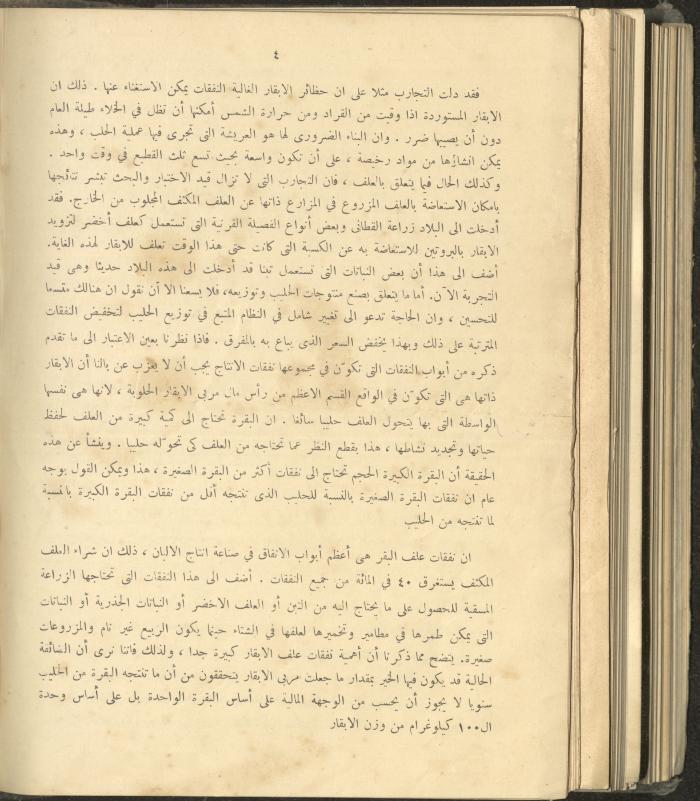 ٤
فقد دلت التجارب مثلا على ان حظائر الابقار الغالية النفقات يمكن الاستغناء عنها . ذلك ان
الابقار المستوردة اذا وقيت من القراد ومن حرارة الشمس أمكنها أن تظل في الخلاء طيلة العام
دون أن يصيبها ضرر . وان البناء الضرورى لها هو العريشة التى تجرى فيها عملية الحلب ، وهذه
يمكن انشاؤها من مواد رخيصة ، على أن تكون واسعة بحيث تسع ثلث القطيع في وقت واحد .
وكذلك الحال فيما يتعلق بالعلف ، فان التجارب التى لا تزال قيد الاختبار والبحث تبشر نتائجها
بامكان الاستعاضة بالعلف المزروع في المزارع ذاتها عن العلف المكثف المجلوب من الخارج. فقد
أدخلت الى البلاد زراعة القطانى وبعض أنواع الفصيلة القرنية التى تستعمل كعلف أخضر لتزويد
الابقار بالبروتين للاستعاضة به عن الكسبة التى كانت حتى هذا الوقت تعلف للابقار لهذه الغاية.
أضف الى هذا أن بعض النباتات التى تستعمل تبنا قد أدخلت الى هذه البلاد حديثا وهى قيد
التجربة الآن. أما ما يتعلق بصنع منتوجات الحليب وتوزيعه، فلا يسعنا الا أن نقول ان هنالك متسعا
للتحسين ، وان الحاجة تدعو الى تغيير شامل في النظام المتبع في توزيع الحليب لتخفيض النفقات
المترتبة على ذلك وبهذا يخفض السعر الذى يباع به بالمفرق . فاذا نظرنا بعين الاعتبار الى ما تقدم
ذكره من أبواب النفقات التى تكوّن في مجموعها نفقات الانتاج يجب أن لا يعزب عن بالنا أن الابقار
ذاتها هى التى تكوّن في الواقع القسم الاعظم من رأس مال مربى الابقار الحلوبة ، لانها هى نفسها
الواسطة التى بها يتحول العلف حليبا سائغا . ان البقرة تحتاج الى كمية كبيرة من العلف لحفظ
حياتها وتجديد نشاطها ، هذا بقطع النظر عما تحتاجه من العلف كى تحوّله حليبا . وينشأ عن هذه
الحقيقة أن البقرة الكبيرة الحجم تحتاج الى نفقات أكثر من البقرة الصغيرة ، هذا ويمكن القول بوجه
عام ان نفقات البقرة الصغيرة بالنسبة للحليب الذى تنتجه أقل من نفقات البقرة الكبيرة بالنسبة
لما تنتجه من الحليب
ان نفقات علف البقر هى أعظم أبواب الانفاق في صناعة انتاج الالبان ، ذلك ان شراء العلف
المكثف يستغرق ٤٠ في المائة من جميع النفقات . أضف الى هذا النفقات التى تحتاجها الزراعة
المسقية للحصول على ما يحتاج اليه من التبن أو العلف الاخضر أو النباتات الجذرية أو النباتات
التى يمكن طمرها في مطامير وتخميرها لعلفها في الشتاء حينما يكون الربيع غير نام والمزروعات
صغيرة. يتضح مما ذكرنا أن أهمية نفقات علف الابقار كبيرة جدا ، ولذلك فاننا نرى أن الضائقة
الحالية قد يكون فيها الخير بمقدار ما جعلت مربى الابقار يتحققون من أن ما تنتجه البقرة من الحليب
سنويا لا يجوز أن يحسب من الوجهة المالية على أساس البقرة الواحدة بل على أساس وحدة
ال١٠٠ كيلوغرام من وزن الابقار